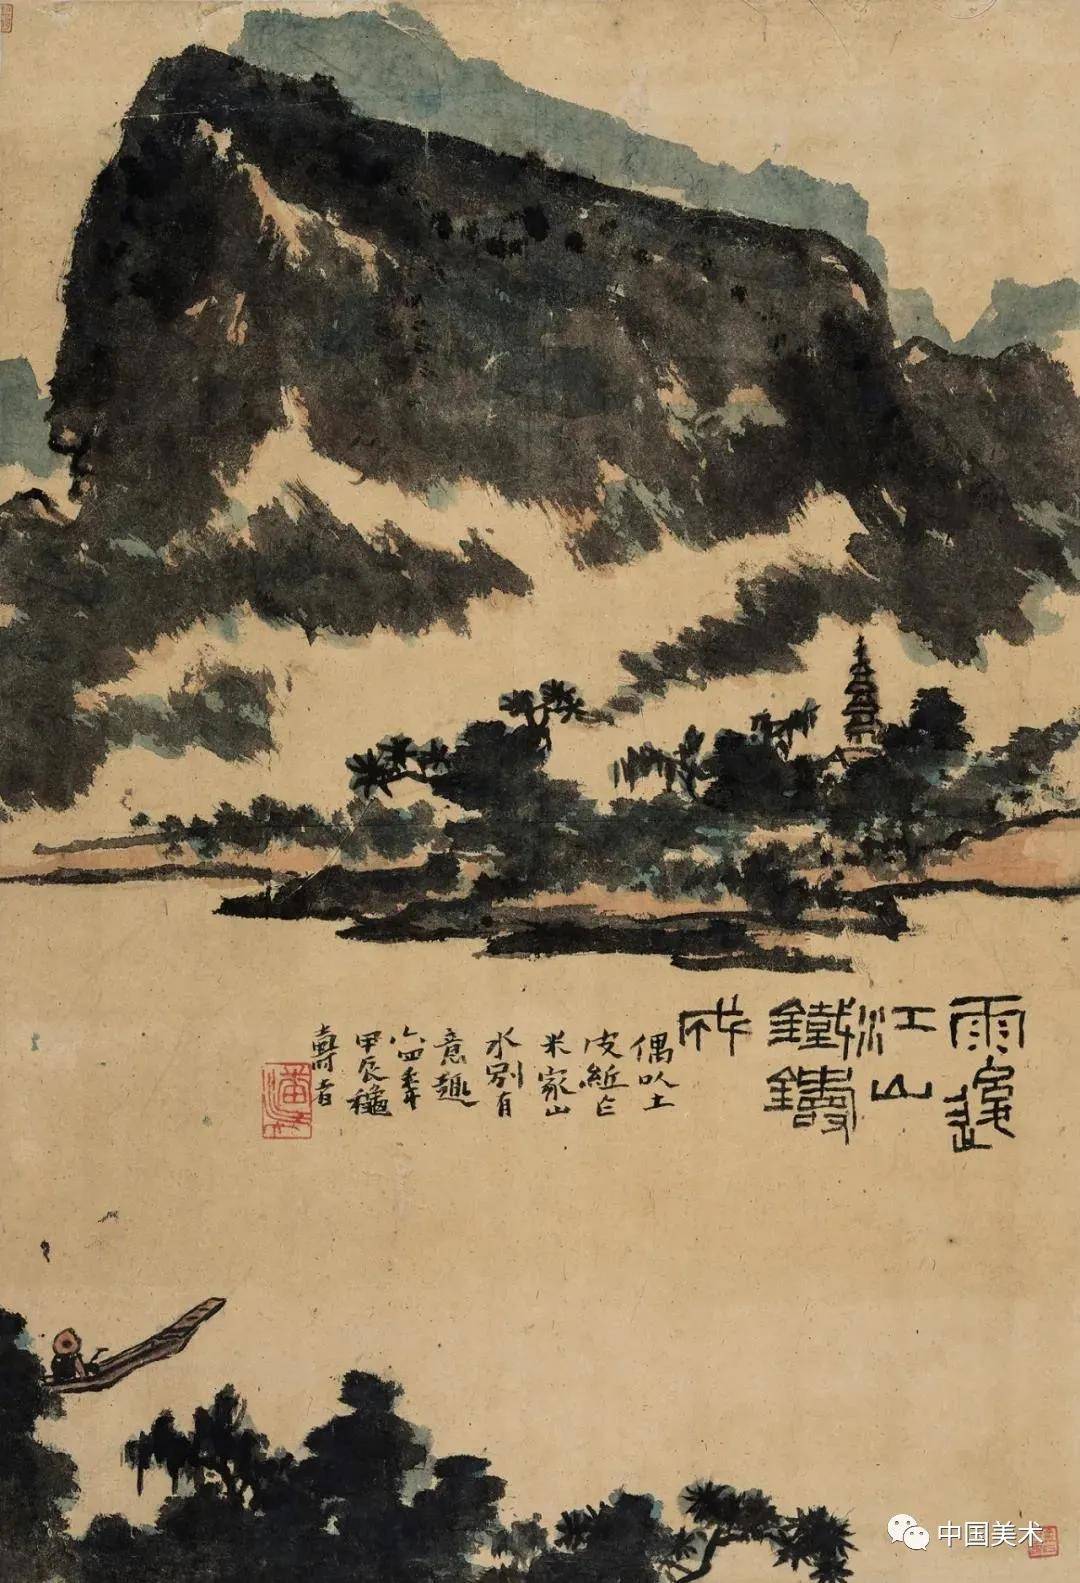 雨後
江山
鐵鑄
成
偶以土
皮紙作
米家山
水別有
意趣
六四年
甲辰穐
壽者
中国美术